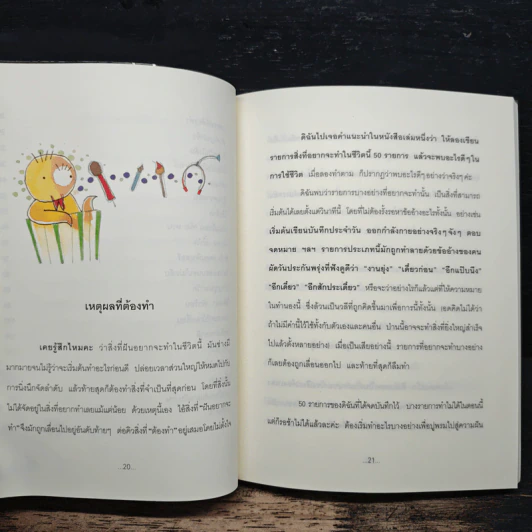 เหตุผลที่ต้องทำ
เคยรู้สึกไหมคะ ว่าสิ่งที่ฝันอยากจะทำในชีวิตนี้ มันช่างมี
มากมายจนไม่รู้ว่าจะเริ่มต้นทำอะไรก่อนดี ปล่อยเวลาส่วนใหญ่ให้หมดไปกับ
การนั่งนึกจัดลำดับ แล้วท้ายสุดก็ต้องทำสิ่งที่จำเป็นที่สุดก่อน โดยที่สิ่งนั้น
ไม่ได้จัดอยู่ในสิ่งที่อยากทำเลยแม้แต่น้อย ด้วยเหตุนี้เอง ไอ้สิ่งที่ "ฝันอยาก
ทำ" จึงมักถูกเลื่อนไปอยู่อันดับท้ายๆ ต่อคิวสิ่งที่ "ต้องทำ" อยู่เสมอโดยไม่ตั้งใจ
..20..
ดิฉันไปเจอคำแนะนำในหนังสือเล่มหนึ่งว่า ให้ลองเขียน
รายการสิ่งที่อยากจะทำในชีวิตนี้ 50 รายการ แล้วจะพบอะไรดีๆใน
การใช้ชีวิต เมื่อลองทำตาม ก็ปรากฏว่าพบอะไรดีๆอย่างว่าจริงๆค่ะ
ดิฉันพบว่ารายการบางอย่างที่อยากจะทำนั้น เป็นสิ่งที่สามารถ
เริ่มต้นได้เลยตั้งแต่วินาทีนี้ โดยที่ไม่ต้องรั้งรอหาข้ออ้างอะไรทั้งนั้น อย่างเช่น
เริ่มต้นเขียนบันทึกประจำวัน ออกกำลังกายอย่างจริงๆจังๆ ตอบ
จดหมาย ฯลฯ รายการประเภทนี้มักถูกทำลายด้วยข้ออ้างของคน
ผัดวันประกันพรุ่งที่ฟังดูดีว่า "งานยุ่ง" "เดี๋ยวก่อน" "อีกแป๊บนึง"
"อีกเดี๋ยว" "อีกสักประเดี๋ยว" หรือจะว่าอย่างไรก็แล้วแต่ที่ให้ความหมาย
ในทำนองนี้ ซึ่งล้วนเป็นวลีที่ถูกคิดขึ้นมาเพื่อการนี้ทั้งนั้น เลยคิดไม่ได้ว่า
ถ้าไม่มีคำนี้ไว้ใช้ทั้งกับตัวเองและคนอื่น ป่านนี้อาจจะทำสิ่งที่ยิ่งใหญ่สำเร็จ
ไปแล้วตั้งหลายอย่าง เมื่อเป็นเสียอย่างนี้ รายการที่อยากจะทำบางอย่าง
ก็เลยต้องถูกเลื่อนออกไป และท้ายที่สุดก็ลืมทำ
50 รายการของดิฉันที่ได้จดบันทึกไว้ บางรายการทำไม่ได้ในตอนนี้
แต่ก็รอช้าไม่ได้แล้วละค่ะ ต้องเริ่มทำอะไรบางอย่างเพื่อปูพรมไปสู่ความฝัน
..21..